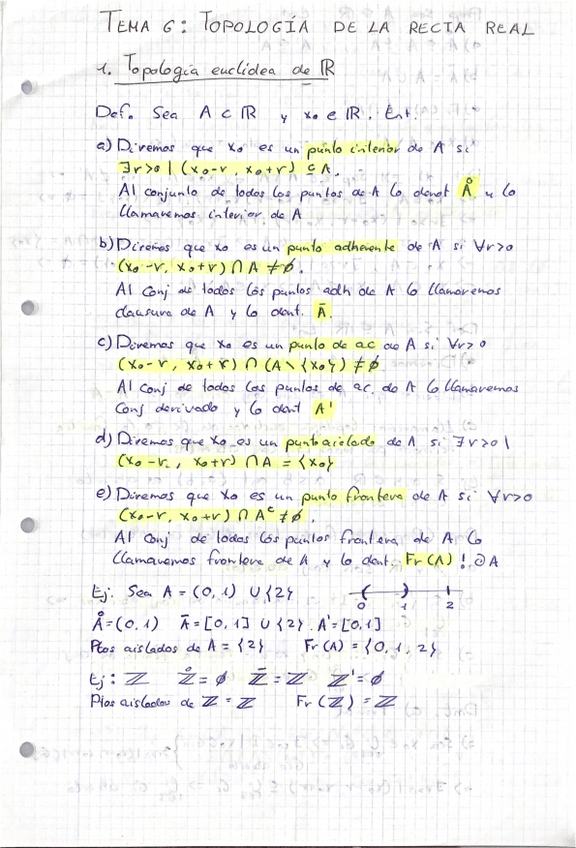 TEMA 6: TOPOLOGÍA DE LA RECTA REAL
1. Topología euclídea de ℝ
Def. Sea A ⊂ ℝ y x₀ ∈ ℝ. Ent.
a) Diremos que x₀ es un punto interior de A si
∃r>0 | (x₀-r, x₀+r) ⊆ A.
Al conjunto de todos los puntos de A lo denot Å y lo
llamaremos interior de A
b) Diremos que x₀ es un punto adherente de A si ∀r>0
(x₀-r, x₀+r) ∩ A ≠ ∅.
Al Conj de todos los puntos adh de A lo llamaremos
clausura de A y lo dent. Ā.
c) Diremos que x₀ es un punto de ac de A si ∀r>0
(x₀-r, x₀+r) ∩ (A \ {x₀}) ≠ ∅
Al conj de todos los puntos de ac. de A lo llamaremos
Conj derivado y lo dent A'
d) Diremos que x₀ es un punto aislado de A si ∃r>0 |
(x₀-r, x₀+r) ∩ A = {x₀}
e) Diremos que x₀ es un punto frontera de A si ∀r>0
(x₀-r, x₀+r) ∩ Aᶜ ≠ ∅.
Al conj de todos los puntos frontera de A lo
llamaremos frontera de A y lo dent. Fr(A) ! ∂A
Ej: Sea A = (0,1) ∪ {2}
0 1 2
Å = (0,1) Ā = [0,1] ∪ {2} A' = [0,1]
Ptos aislados de A = {2} Fr(A) = {0,1,2}
Ej: ℤ ℤ̊ = ∅ ℤ̄ = ℤ ℤ' = ∅
Ptos aislados de ℤ = ℤ Fr(ℤ) = ℤ